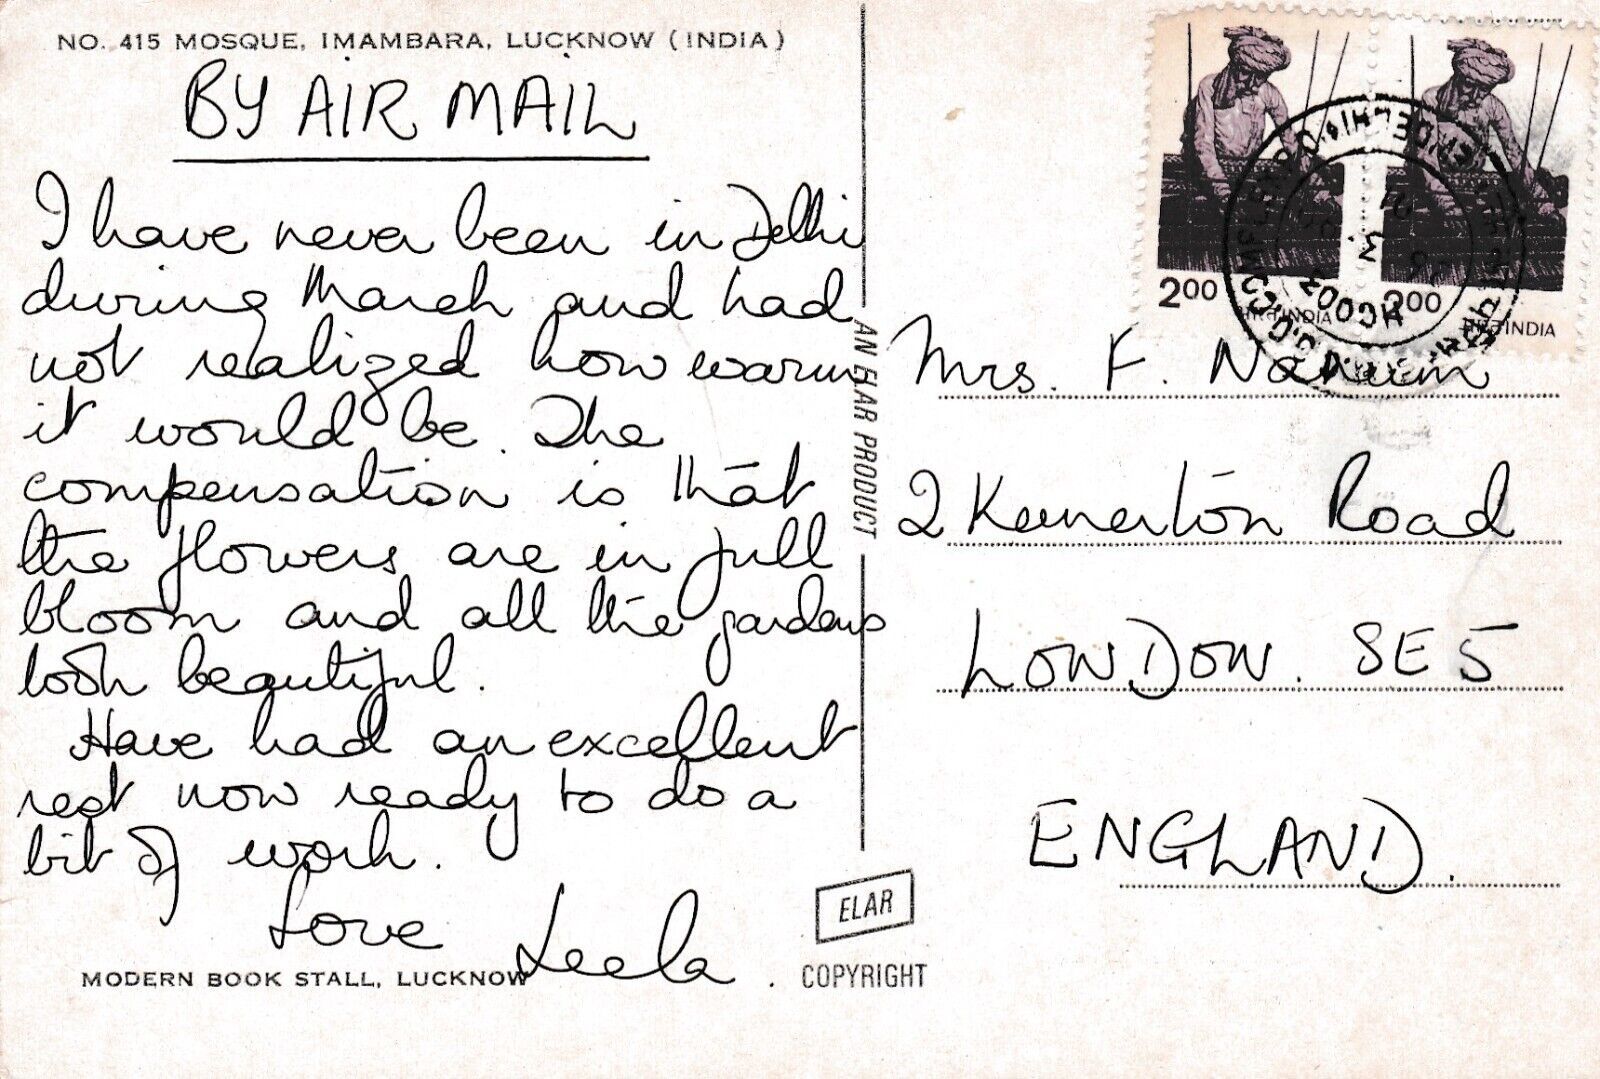 NO. 415 MOSQUE, IMAMBARA, LUCKNOW (INDIA)
BY AIR MAIL
I have never been in Delhi
during March and had
not realized how warm
it would be. The
compensation is that
the flowers are in full
bloom and all the gardens
look beautiful.
Have had an excellent
rest now ready to do a
bit of work.
Love Leela.
MODERN BOOK STALL, LUCKNOW
AN ELAR PRODUCT
ELAR
COPYRIGHT
2.00
भारत INDIA
2.00
भारत INDIA
NEW DELHI
Mrs. F.
2 Kemerton Road
LONDON. SE 5
ENGLAND.